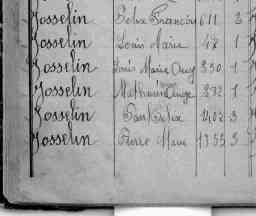 Josselin Felix François 611 3
Josselin Louis Marie 47 1
Josselin Louis Marie Ange 350 1
Josselin Mathurin Ange 372 1
Josselin Paul Felix 1402 3
Josselin Pierre Marie 1355 3